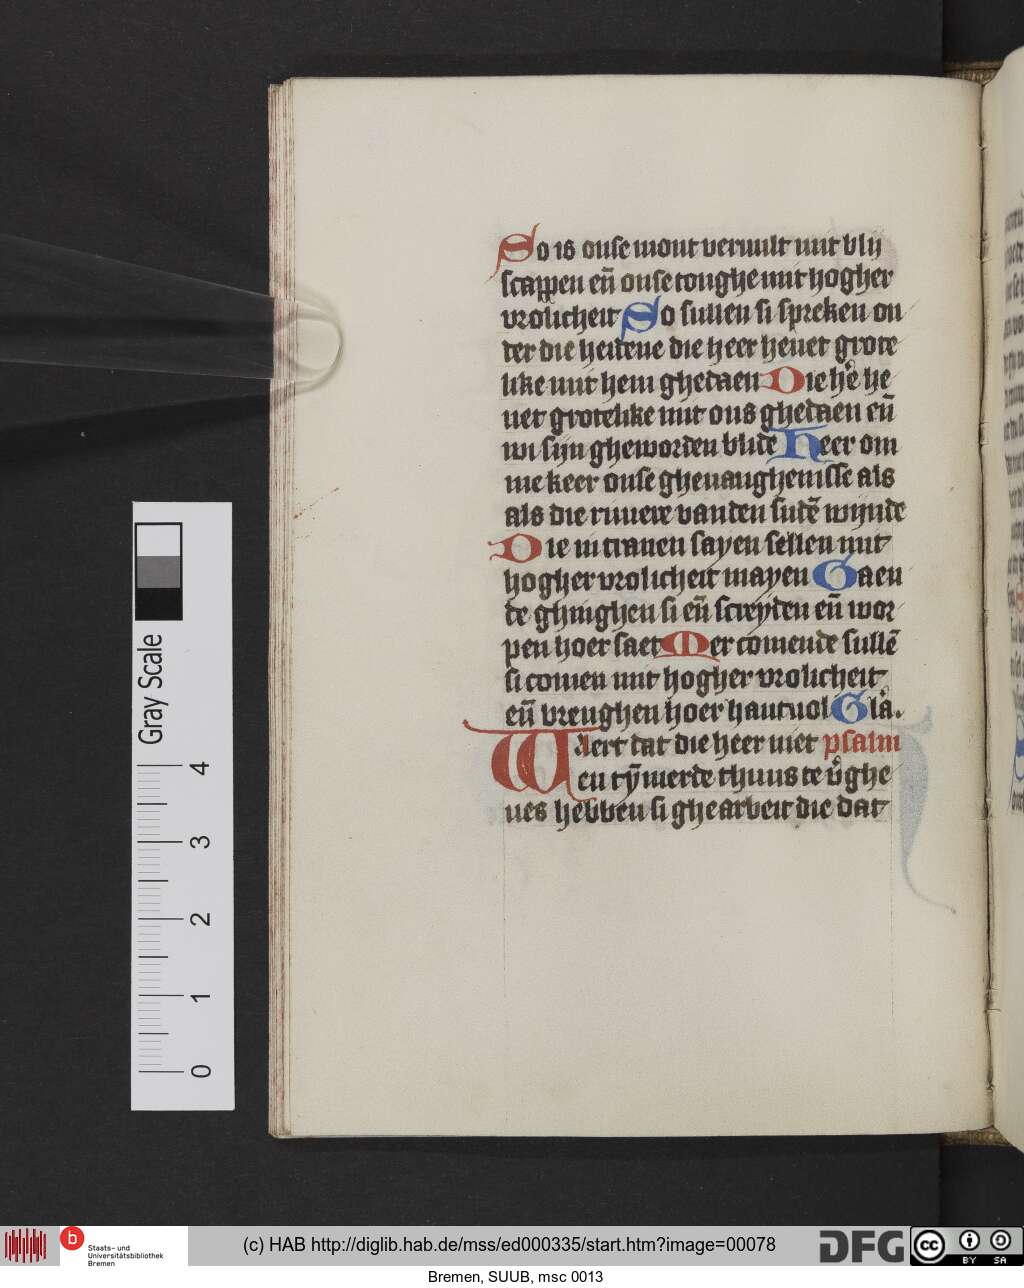 So is onse mont veruult mit blij
scappen en̄ onse tonghe mit hogher
vrolicheit So sullen si spreken on
der die heidene die heer heuet grote
like mit hem ghedaen Die he͛ he
uet grotelike mit ons ghedaen en̄
wi sijn gheworden blide Heer om
me keer onse gheuanghenisse als
als die riuiere vanden sudē wijnde
Die in tranen sayen sellen mit
hogher vrolicheit mayen Gaen
de ghinghen si en̄ screyden en̄ wor
pen hoer saet Mer comende sullē
si comen mit hogher vrolicheit
en̄ vreughen hoer hant uol Gla͛.
Waert dat die heer niet psalm
en tȳmerde thuus te v͛ghe
ues hebben si ghearbeit die dat
Gray Scale
4
3
2
1
0
b
Staats- und
Universitätsbibliothek
Bremen
(c) HAB http://diglib.hab.de/mss/ed000335/start.htm?image=00078
DFG
cc
BY SA
Bremen, SUUB, msc 0013